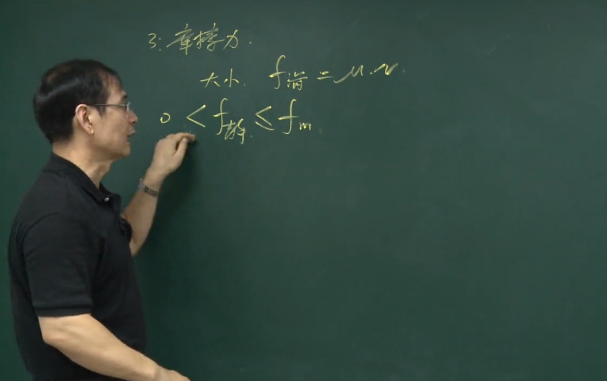 3:摩擦力.
大小. f滑=μ.N.
0<f静.≤fm.